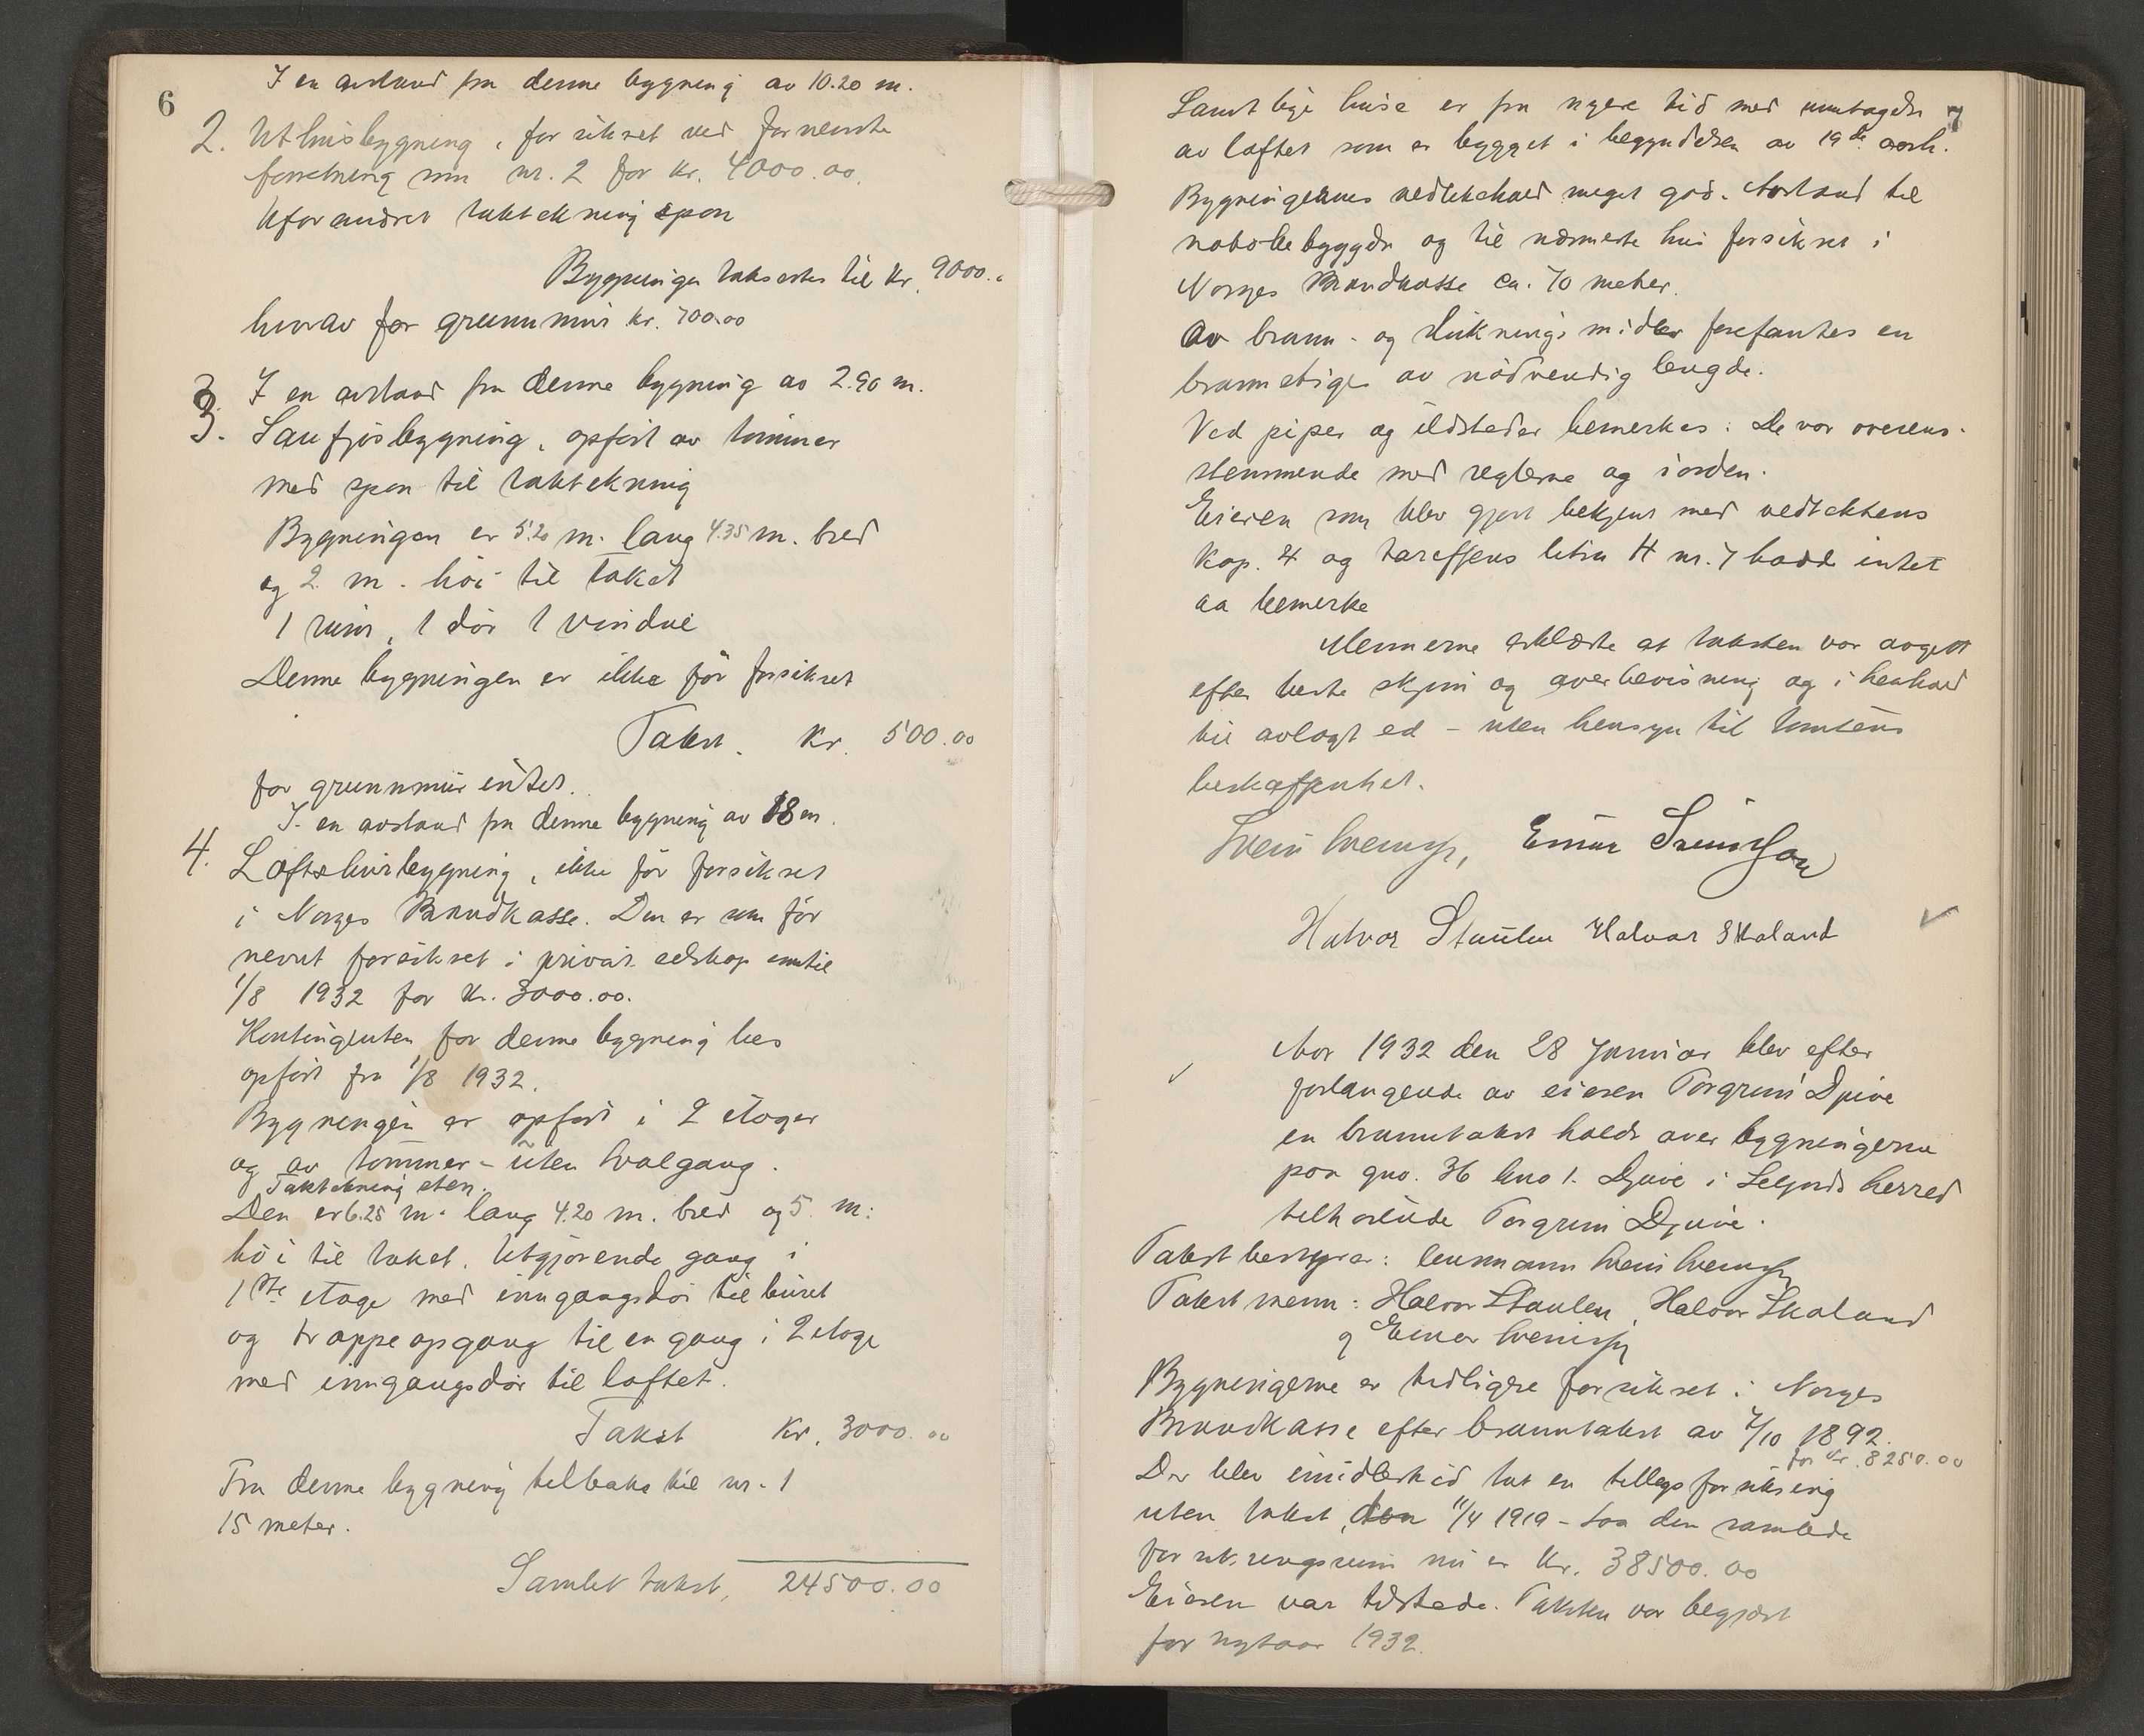 6
I en avstand fra denne bygning av 10.20 m.
2. Uthusbygning, forsikret ved fornevnte
forretning som nr. 2 for kr. 4000.00.
Uforandret taktekning spon
Bygningen takseres til kr. 9000..
hvorav for grunnmur kr. 700.00
I en avstand fra denne bygning av 2.90 m.
3. Saufjøsbygning, opført av tømmer
med spon til taktekning
Bygningen er 5.20 m. lang 4.35 m. bred
og 2 m. høi til taket
1 rum, 1 dør 1 vindue
Denne bygningen er ikke før forsikret
Takst. Kr. 500.00
for grunnmur intet.
I en avstand fra denne bygning av 18 m.
4. Loftsbursbygning, ikke før forsikret
i Norges Brandkasse. Den er som før
nevnt forsikret i privat selskap inntil
1/8 1932 for kr. 3000.00.
Kontingenten for denne bygning bes
opført fra 1/8 1932.
Bygningen er opført i 2 etager
og av tømmer - uten svalgang.
Taktekning sten.
Den er 6.25 m. lang 4.20 m. bred og 5 m:
høi til taket. Utgjørende gang i
1ste etage med inngangsdør til buret
og trappeopgang til en gang i 2 etage
med inngangsdør til loftet.
Takst Kr. 3000.00
Fra denne bygning tilbake til nr. 1
15 meter.
Samlet takst, 24500.00
7
Samtlige huse er fra nyere tid med undtagelse
av loftet som er bygget i begyndelsen av 19de aarh.
Bygningernes vedlikehold meget god. Avstand til
nabobebyggelse og til nærmeste hus forsikret i
Norges Brandkasse ca. 70 meter.
Av brann- og slukningsmidler forefantes en
brannstige av nødvendig lengde.
Ved piper og ildsteder bemerkes: De var overens-
stemmende med reglerne og i orden.
Eieren som blev gjort bekjent med vedtektens
Kap. 4 og tariffens litra H nr. 7 hadde intet
aa bemerke
Mennerne erklærte at taksten var avgitt
efter beste skjøn og overbevisning og i henhold
til avlagt ed - uten hensyn til tomtens
beskaffenhet.
Svein Sveinss, Einar Sveinsson
Halvor Staulen Halvor Skaland
Aar 1932 den 28 Januar blev efter
forlangende av eieren Torgrim Djuve
en branntakst holdt over bygningerne
paa gno. 36 bno 1. Djuve i Seljords herred
tilhørende Torgrim Djuve.
Takstbestyrer: lensmann Svein Sveinss
Takstmenn: Halvor Staulen, Halvor Skaland
og Einar Sveinss
Bygningerne er tidligere forsikret i Norges
Brandkasse efter branntakst av 7/10 1892.
for kr. 8250.00
Der blev imidlertid tat en tilleggsforsikring
uten takst, den 11/4 1919 - saa den samlede
forsikringssum nu er kr. 38500.00
Eieren var tilstede. Taksten var begjært
før nytaar 1932.